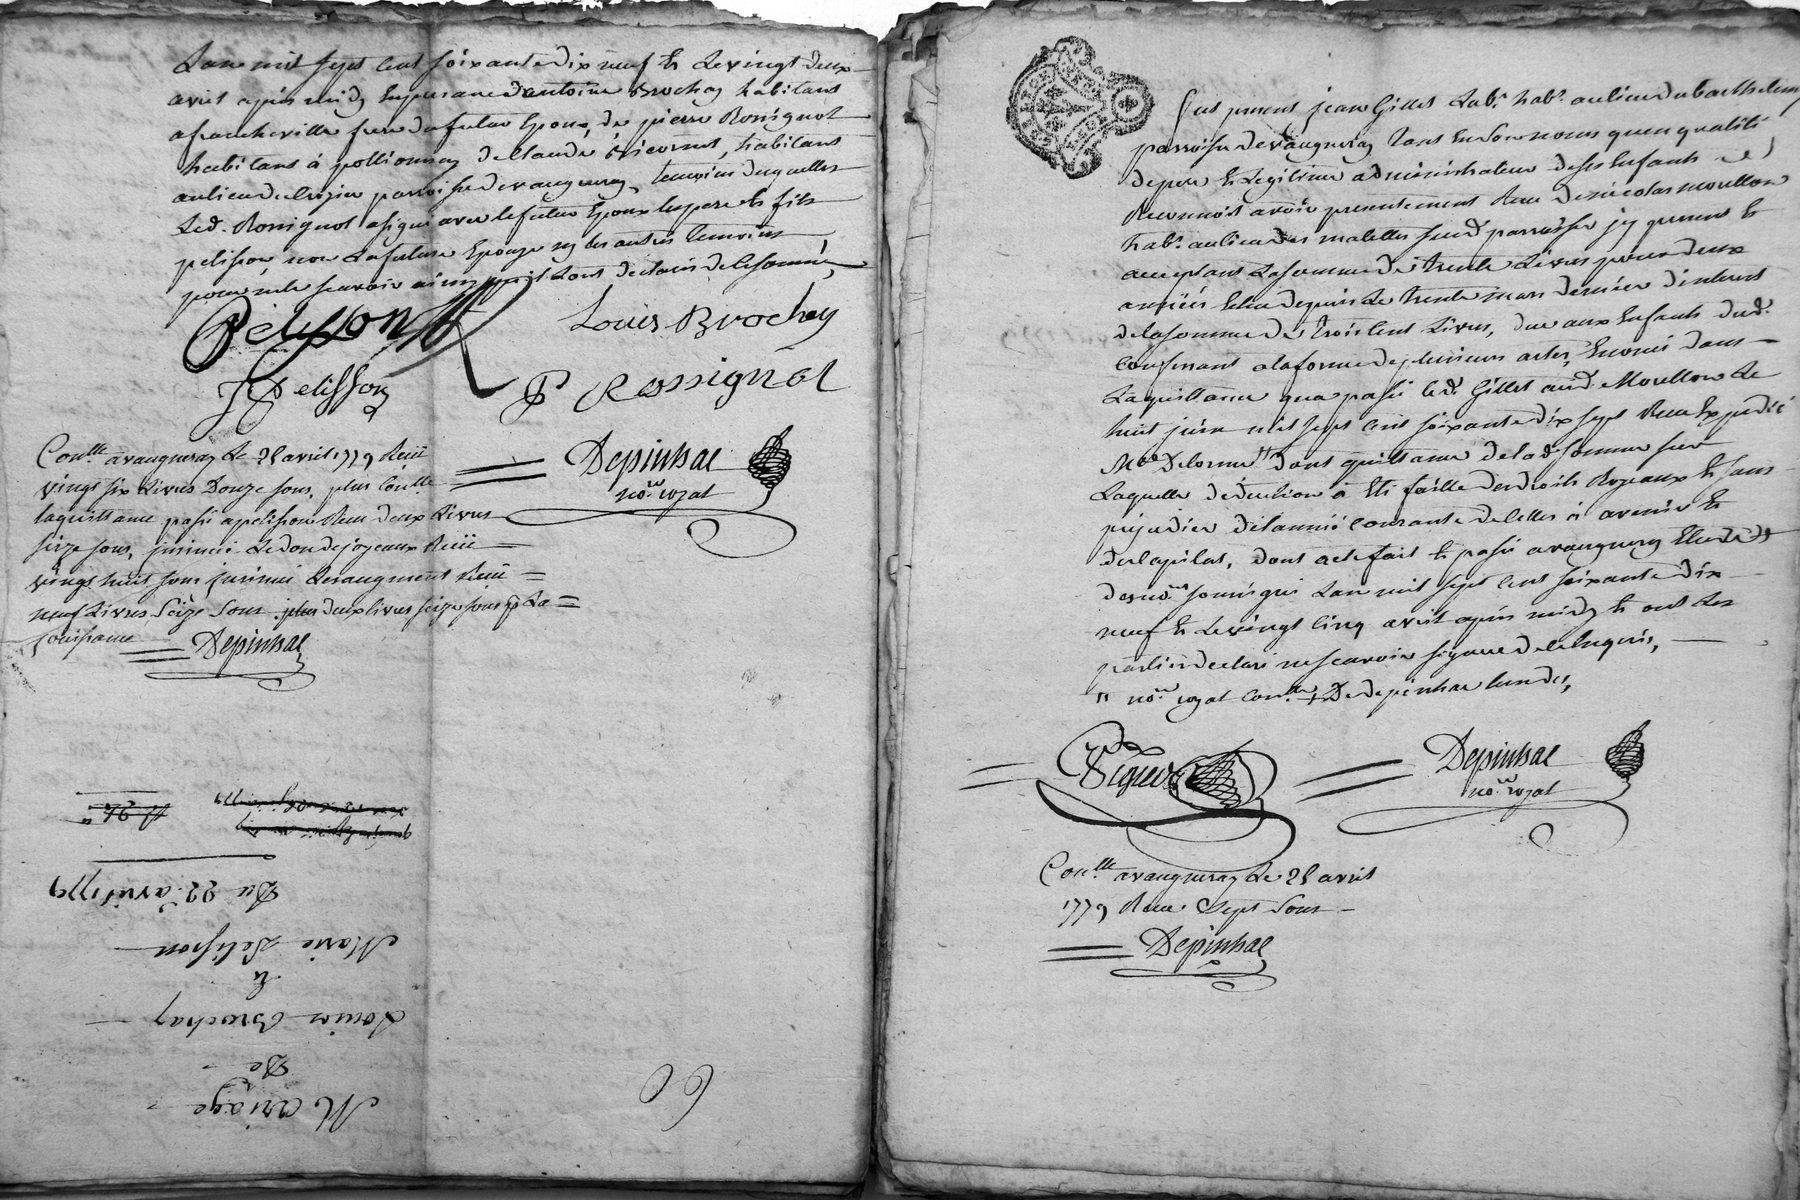 L'an mil sept cent soixante dix neuf & le vingt deux
avril apres midy en presence d'antoine Brochay habitant
a francheville frere du futur Epoux, de pierre Rossignol
habitant à pollionnay de Claude habitant
au lieu de parroisse de vaugneray temoins desquelles
Led. Rossignol a signé avec le futur Epoux les pere & fils
pelisson, non La future Epouze ny les autres temoins
pour ne le scavoir ainsy qu'ils l'ont declaré de ce sommé,
Pelisson
Louis Brochay
J Pelisson
P Rossignol
Con.lle a vaugneray Le 28 avril 1779 Reçu
vingt six Livres Douze sous, plus Con.lle
la quittance passé a pelisson Reçu deux Livres
seize sous, insinué Le don de joyeaux Reçu
vingt huit sous insinué L'augment Reçu
neuf Livres Seize Sous plus deux livres seize sous p. La
jouissance
Depinhac
Depinhac
no.re royal
Du 22 avril 1779
Marie Pelisson
&
Louis Brochay
De
Mariage
60
Fut present jean Gillet Lab.r hab.t au lieu du barthelemy
parroisse de vaugneray tant en son nom qu'en qualité
de pere & Legitime administrateur de ses Enfants
Reconnoit avoir presentement Reçu de nicolas morellon
hab.t au lieu des malettes susd. parroisse icy present &
acceptant La somme de trente Livres pour deux
années Echu depuis Le trente mars dernier d'interet
de la somme de trois Cent Livres, due aux Enfants dud.
Confessant a la forme de plusieurs actes, Enoncé dans
La quittance qu'a passé led. Gillet aud. Morellon Le
huit juin mil sept cent soixante dix sept Reçu Expedié
M.e Delorme dont quittance de lad. somme sur
Laquelle deduction a Eté faitte des droits Royaux & sans
prejudice de l'année Courante de Celles à avenir &
du Capital, dont acte fait & passé a vaugneray Etude
des no.res soussignés L'an mil sept cent soixante dix
neuf & Le vingt Cinq avril apres midy & ont Les
parties declaré ne scavoir signer de ce Enquis,
no.re royal
Depinhac
no.re royal
Con.lle a vaugneray Le 28 avril
1779 Reçu Sept Sous
Depinhac